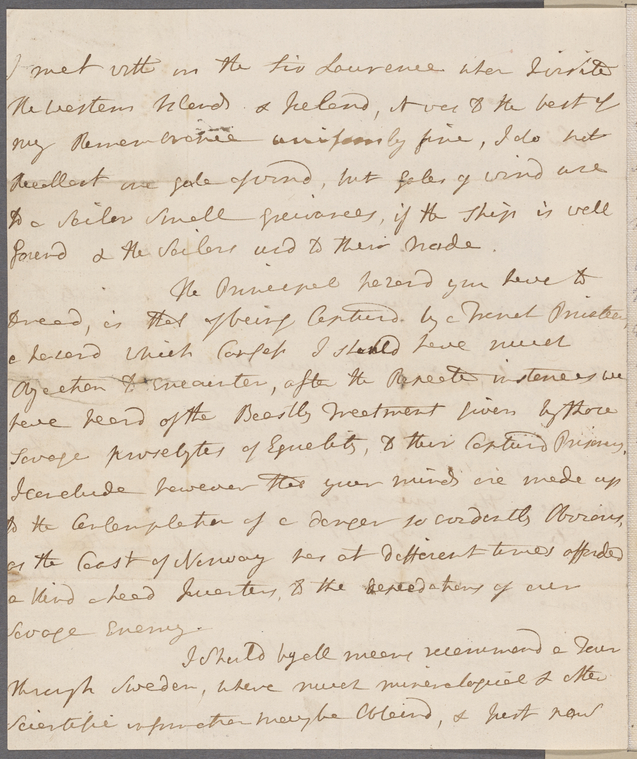 I met with in the Sir Laurence when I visited
the western Islands & Iceland, it was to the best of
my Remembrance uniformly fine, I do not
Recollect one gale of wind, but gales of wind are
to a Sailor Small greivances, if the Ship is well
found & the Sailors usd to their trade.
The Principal hazard you have to
dread, is that of being Capturd by a French Privateer,
a hazard which I Should have much
Objection to encounter, after the Repeated instances we
have heard of the Beastly Treatment given by those
Savage proselytes of Equality, to their Capturd Prisoners,
I conclude however that your minds are made up
to the Contemplation of a danger so evidently Obvious,
as the Coast of Norway has at different times afforded
a kind of head Quarters, to the depredations of our
Savage Enemy.
I Should by all means recommend a Tour
through Sweden, where much mineralogical & other
Scientific information may be Obtaind, & Just now